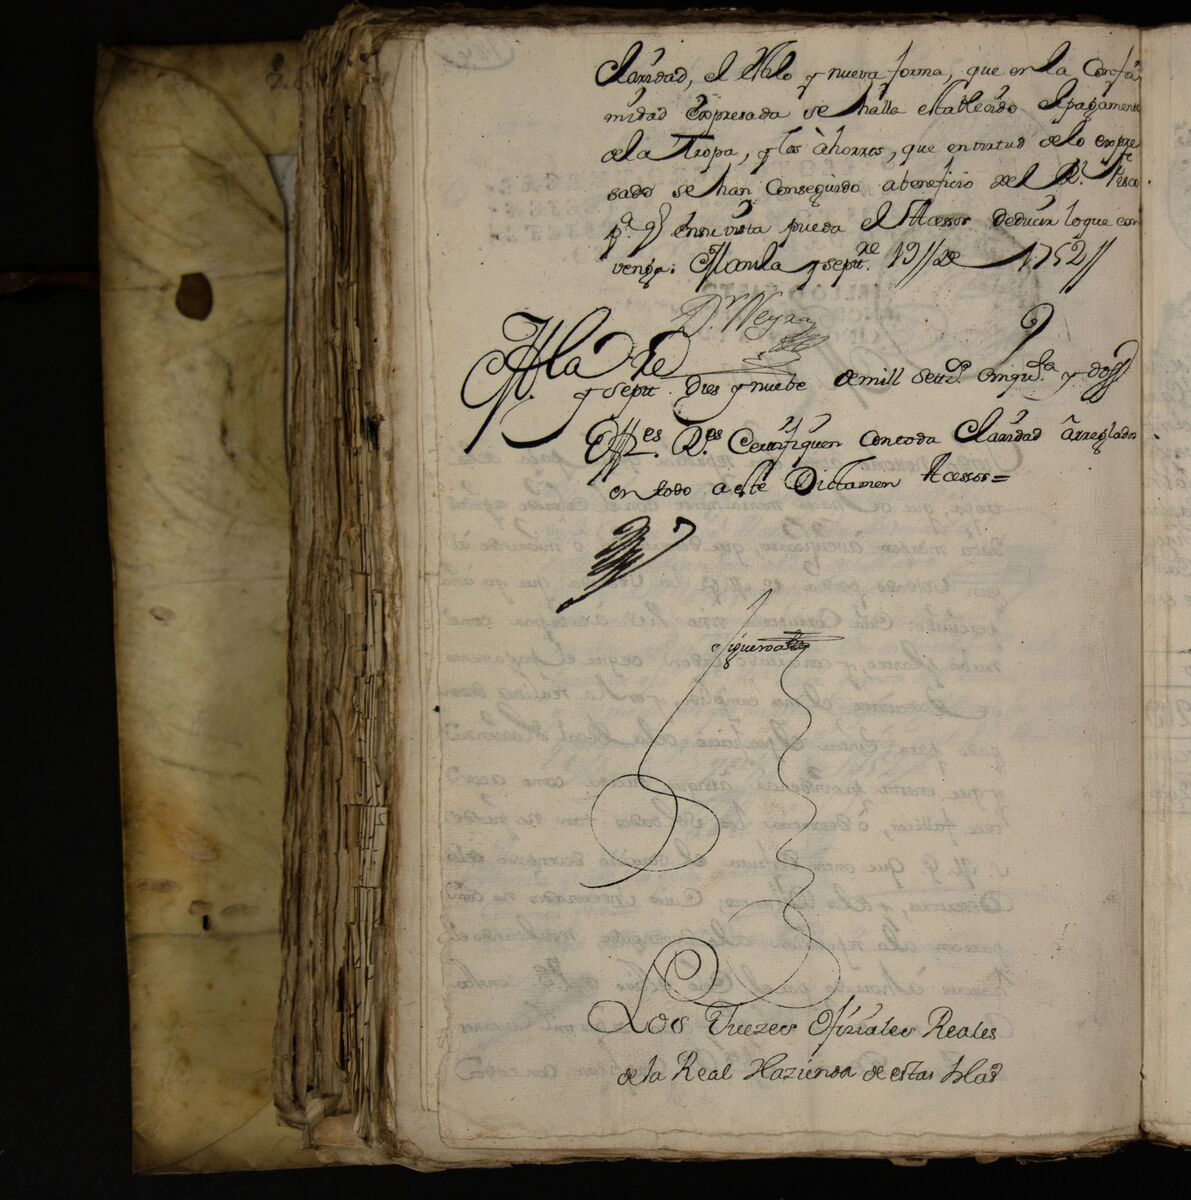 Claridad, el estilo y nueva forma, que en la Confor
midad expresada se halla establecido el pagamento
de la Tropa, y los àhorros, que en virtud de lo expre
sado se han Conseguido a beneficio del Rl. Fisco.
pa. qe. en su vista pueda el Assesor deducir lo que con
venga: Manila y septre. 19// de 1752//
Dr. Neyra
Mla
y septre. Dies y nuebe de mill settos. cinqta. y dos//
Ofes. Res. Certifiquen con toda Claridad àrreglados
en todo a este Dictamen Assesor=
Figueroa
Los Juezes Ofiziales Reales
de la Real Hazienda de estas Islas